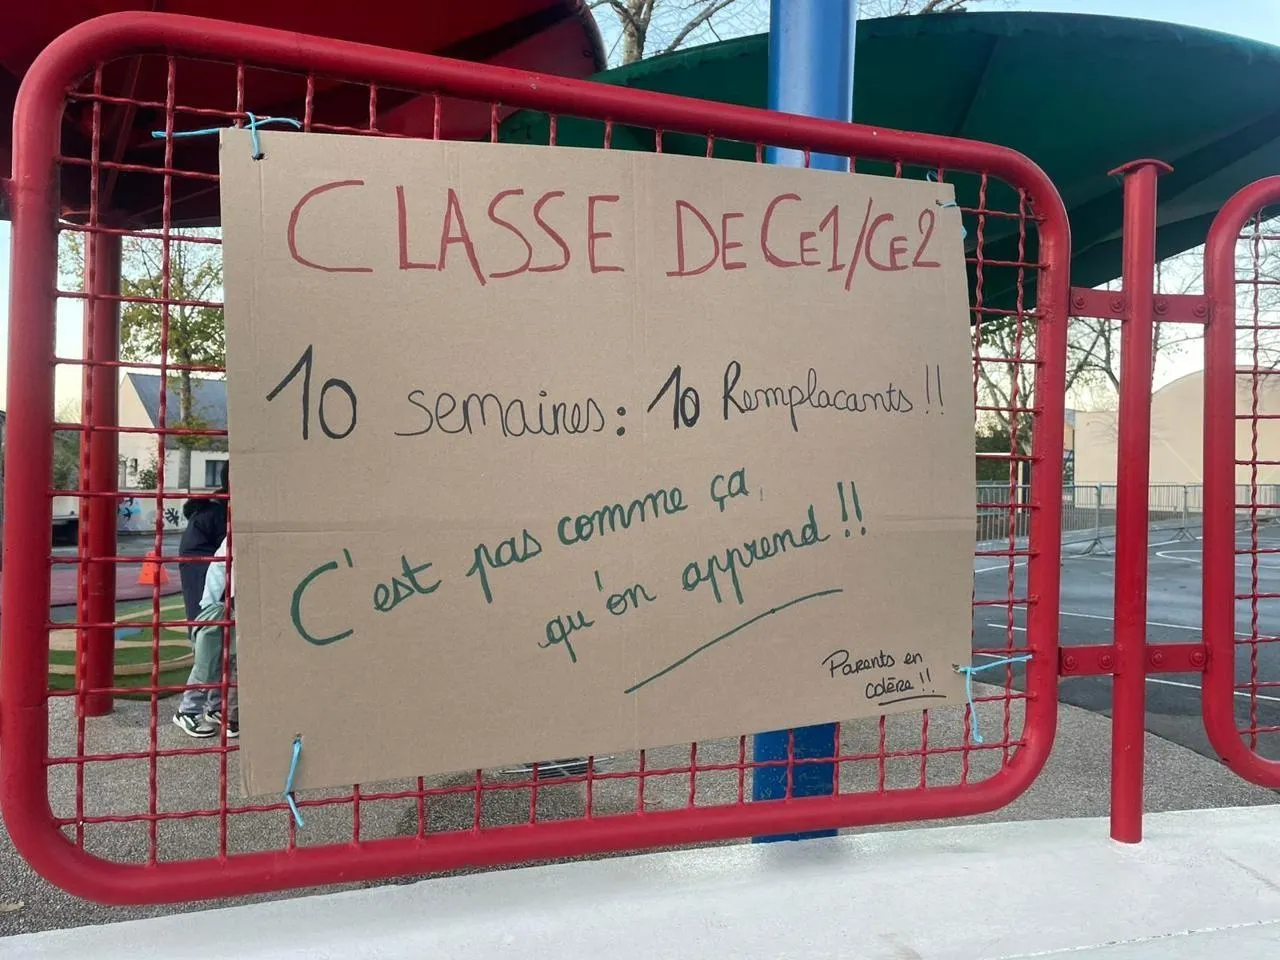 CLASSE DE CE1/CE2
10 semaines : 10 Remplacants !!
C'est pas comme ça,
qu'on apprend !!
Parents en
colère !!